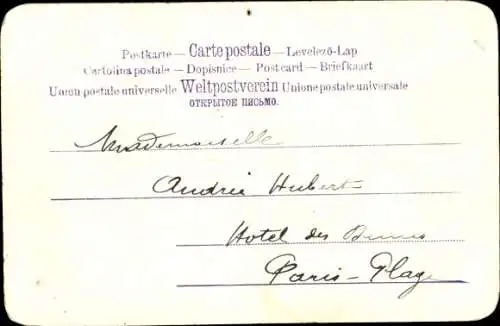 Postkarte — Carte postale — Levelezö-Lap
Cartolina postale — Dopisnice — Postcard — Briefkaart
Union postale universelle Weltpostverein Unione postale universale
ОТКРЫТОЕ ПИСЬМО.
Mademoiselle
Andrée Hubert
Hotel des Dunes
Paris-Plage